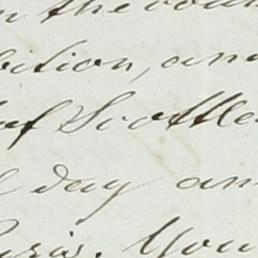 in the cou
bition, and
of Scottle
day an
aris. You